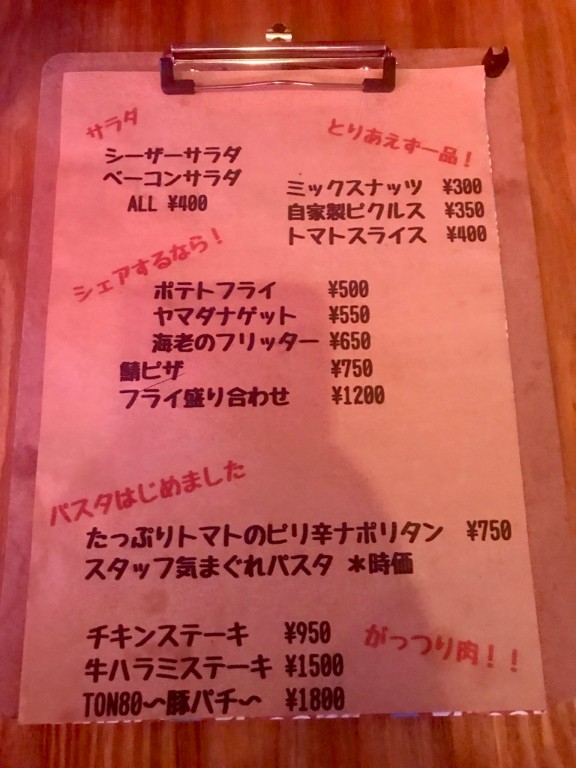 サラダ
シーザーサラダ
ベーコンサラダ
ALL ¥400
とりあえず一品！
ミックスナッツ ¥300
自家製ピクルス ¥350
トマトスライス ¥400
シェアするなら！
ポテトフライ ¥500
ヤマダナゲット ¥550
海老のフリッター ¥650
鯖ピザ ¥750
フライ盛り合わせ ¥1200
パスタはじめました
たっぷりトマトのピリ辛ナポリタン ¥750
スタッフ気まぐれパスタ ＊時価
がっつり肉！！
チキンステーキ ¥950
牛ハラミステーキ ¥1500
TON80〜豚バチ〜 ¥1800